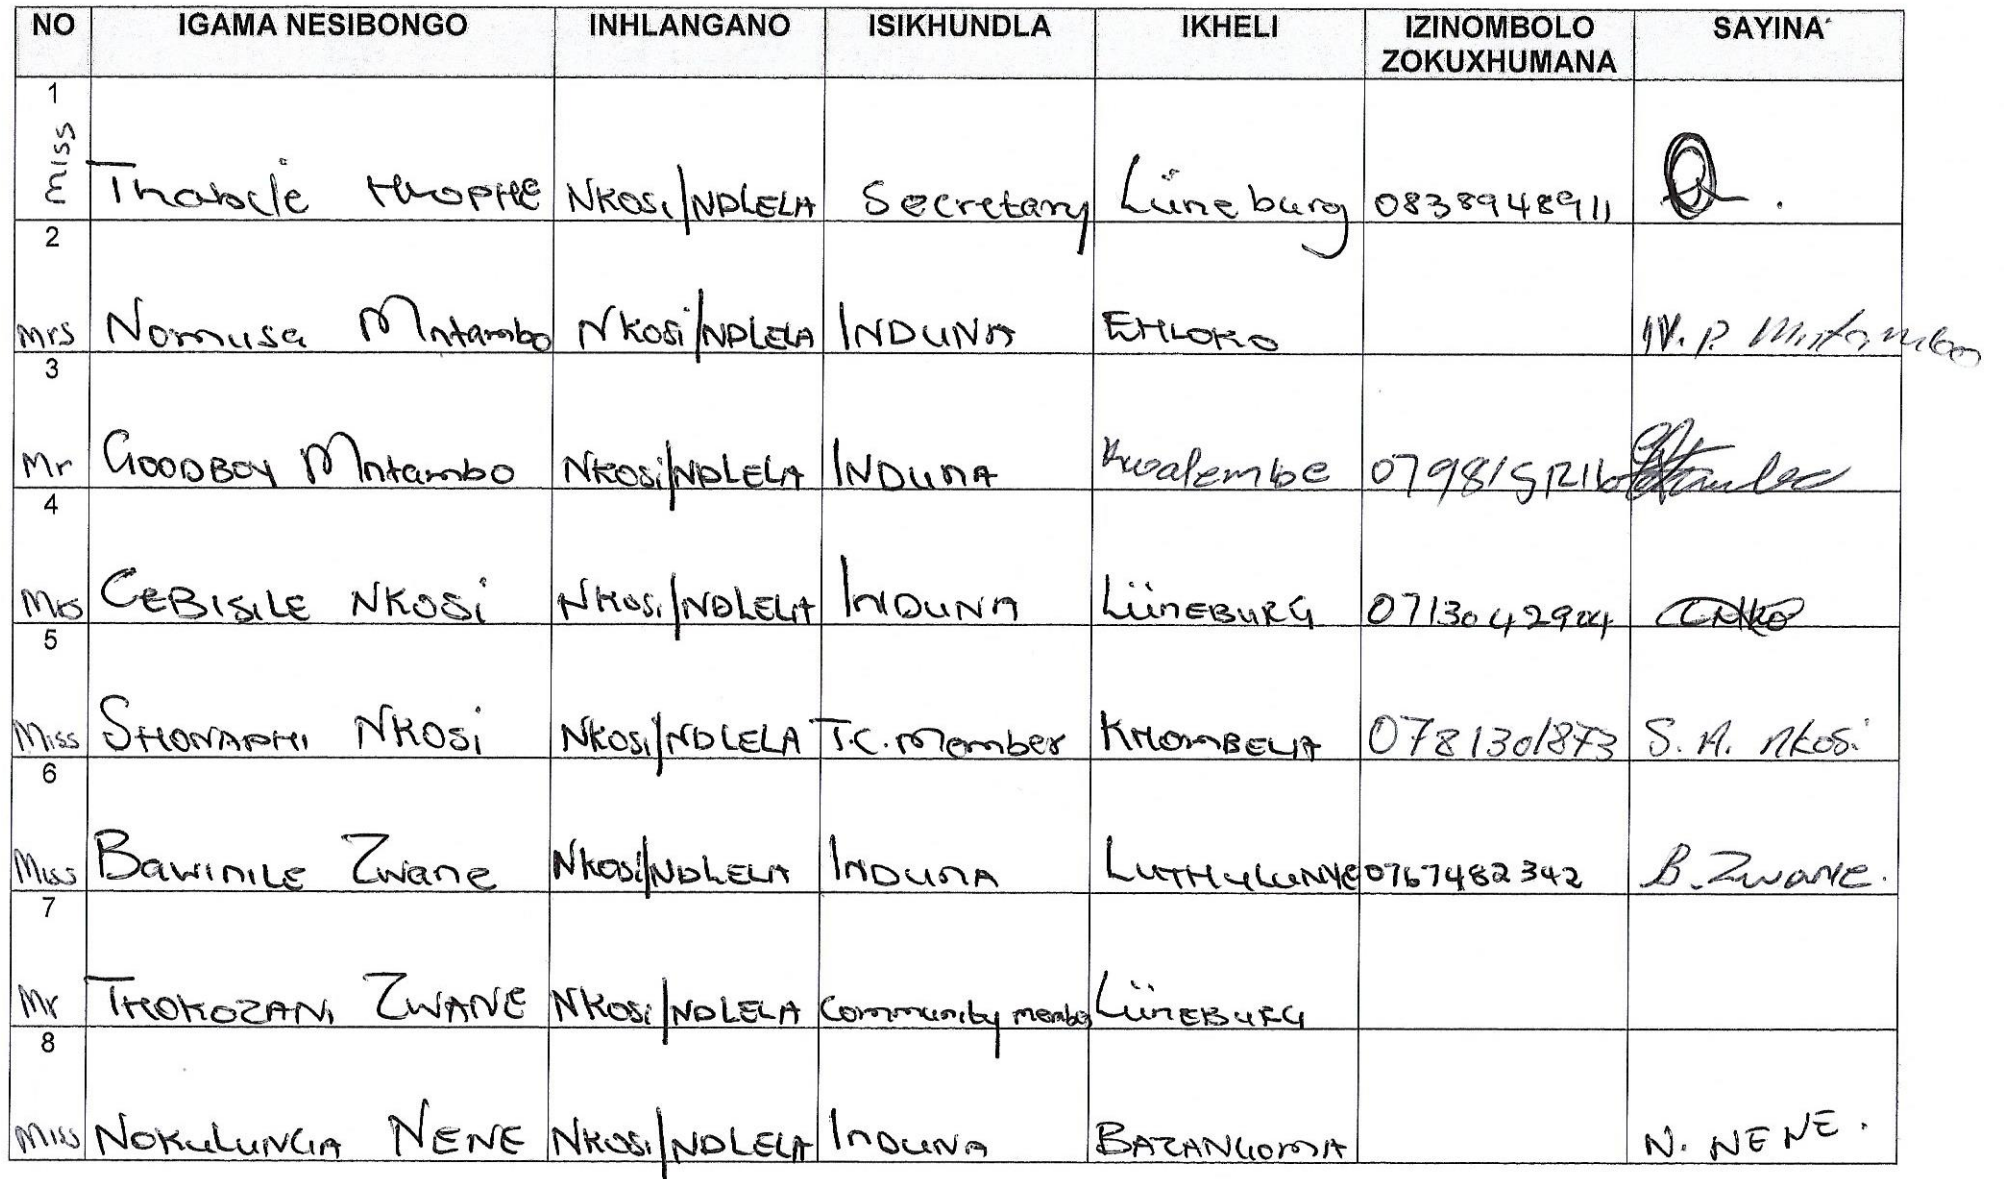 NO IGAMA NESIBONGO INHLANGANO ISIKHUNDLA IKHELI IZINOMBOLO ZOKUXHUMANA SAYINA
1 Miss Thabile Hlophe NKOSI/NDLELA Secretary Lüneburg 0838948911
2 Mrs Nomusa Mntambo NKOSI/NDLELA INDUNA EHLOKO N.P. Mntambo
3 Mr GOODBOY Mntambo NKOSI/NDLELA INDUNA Kwalembe
4 Mrs CEBISILE NKOSI NKOSI/NDLELA INDUNA LüNEBURG
5 Miss SHONAPHI NKOSI NKOSI/NDLELA T.C. Member KHOMBELA 0781301873 S. A. Nkosi
6 Miss BAWINILE Zwane NKOSI/NDLELA INDUNA LUTHULUNYE 0767482342 B. ZWANE.
7 Mr THOKOZANI ZWANE NKOSI/NDLELA Community member LüNEBURG
8 Miss NOKULUNGA NENE NKOSI/NDLELA INDUNA BAZANGOMA N. NENE.